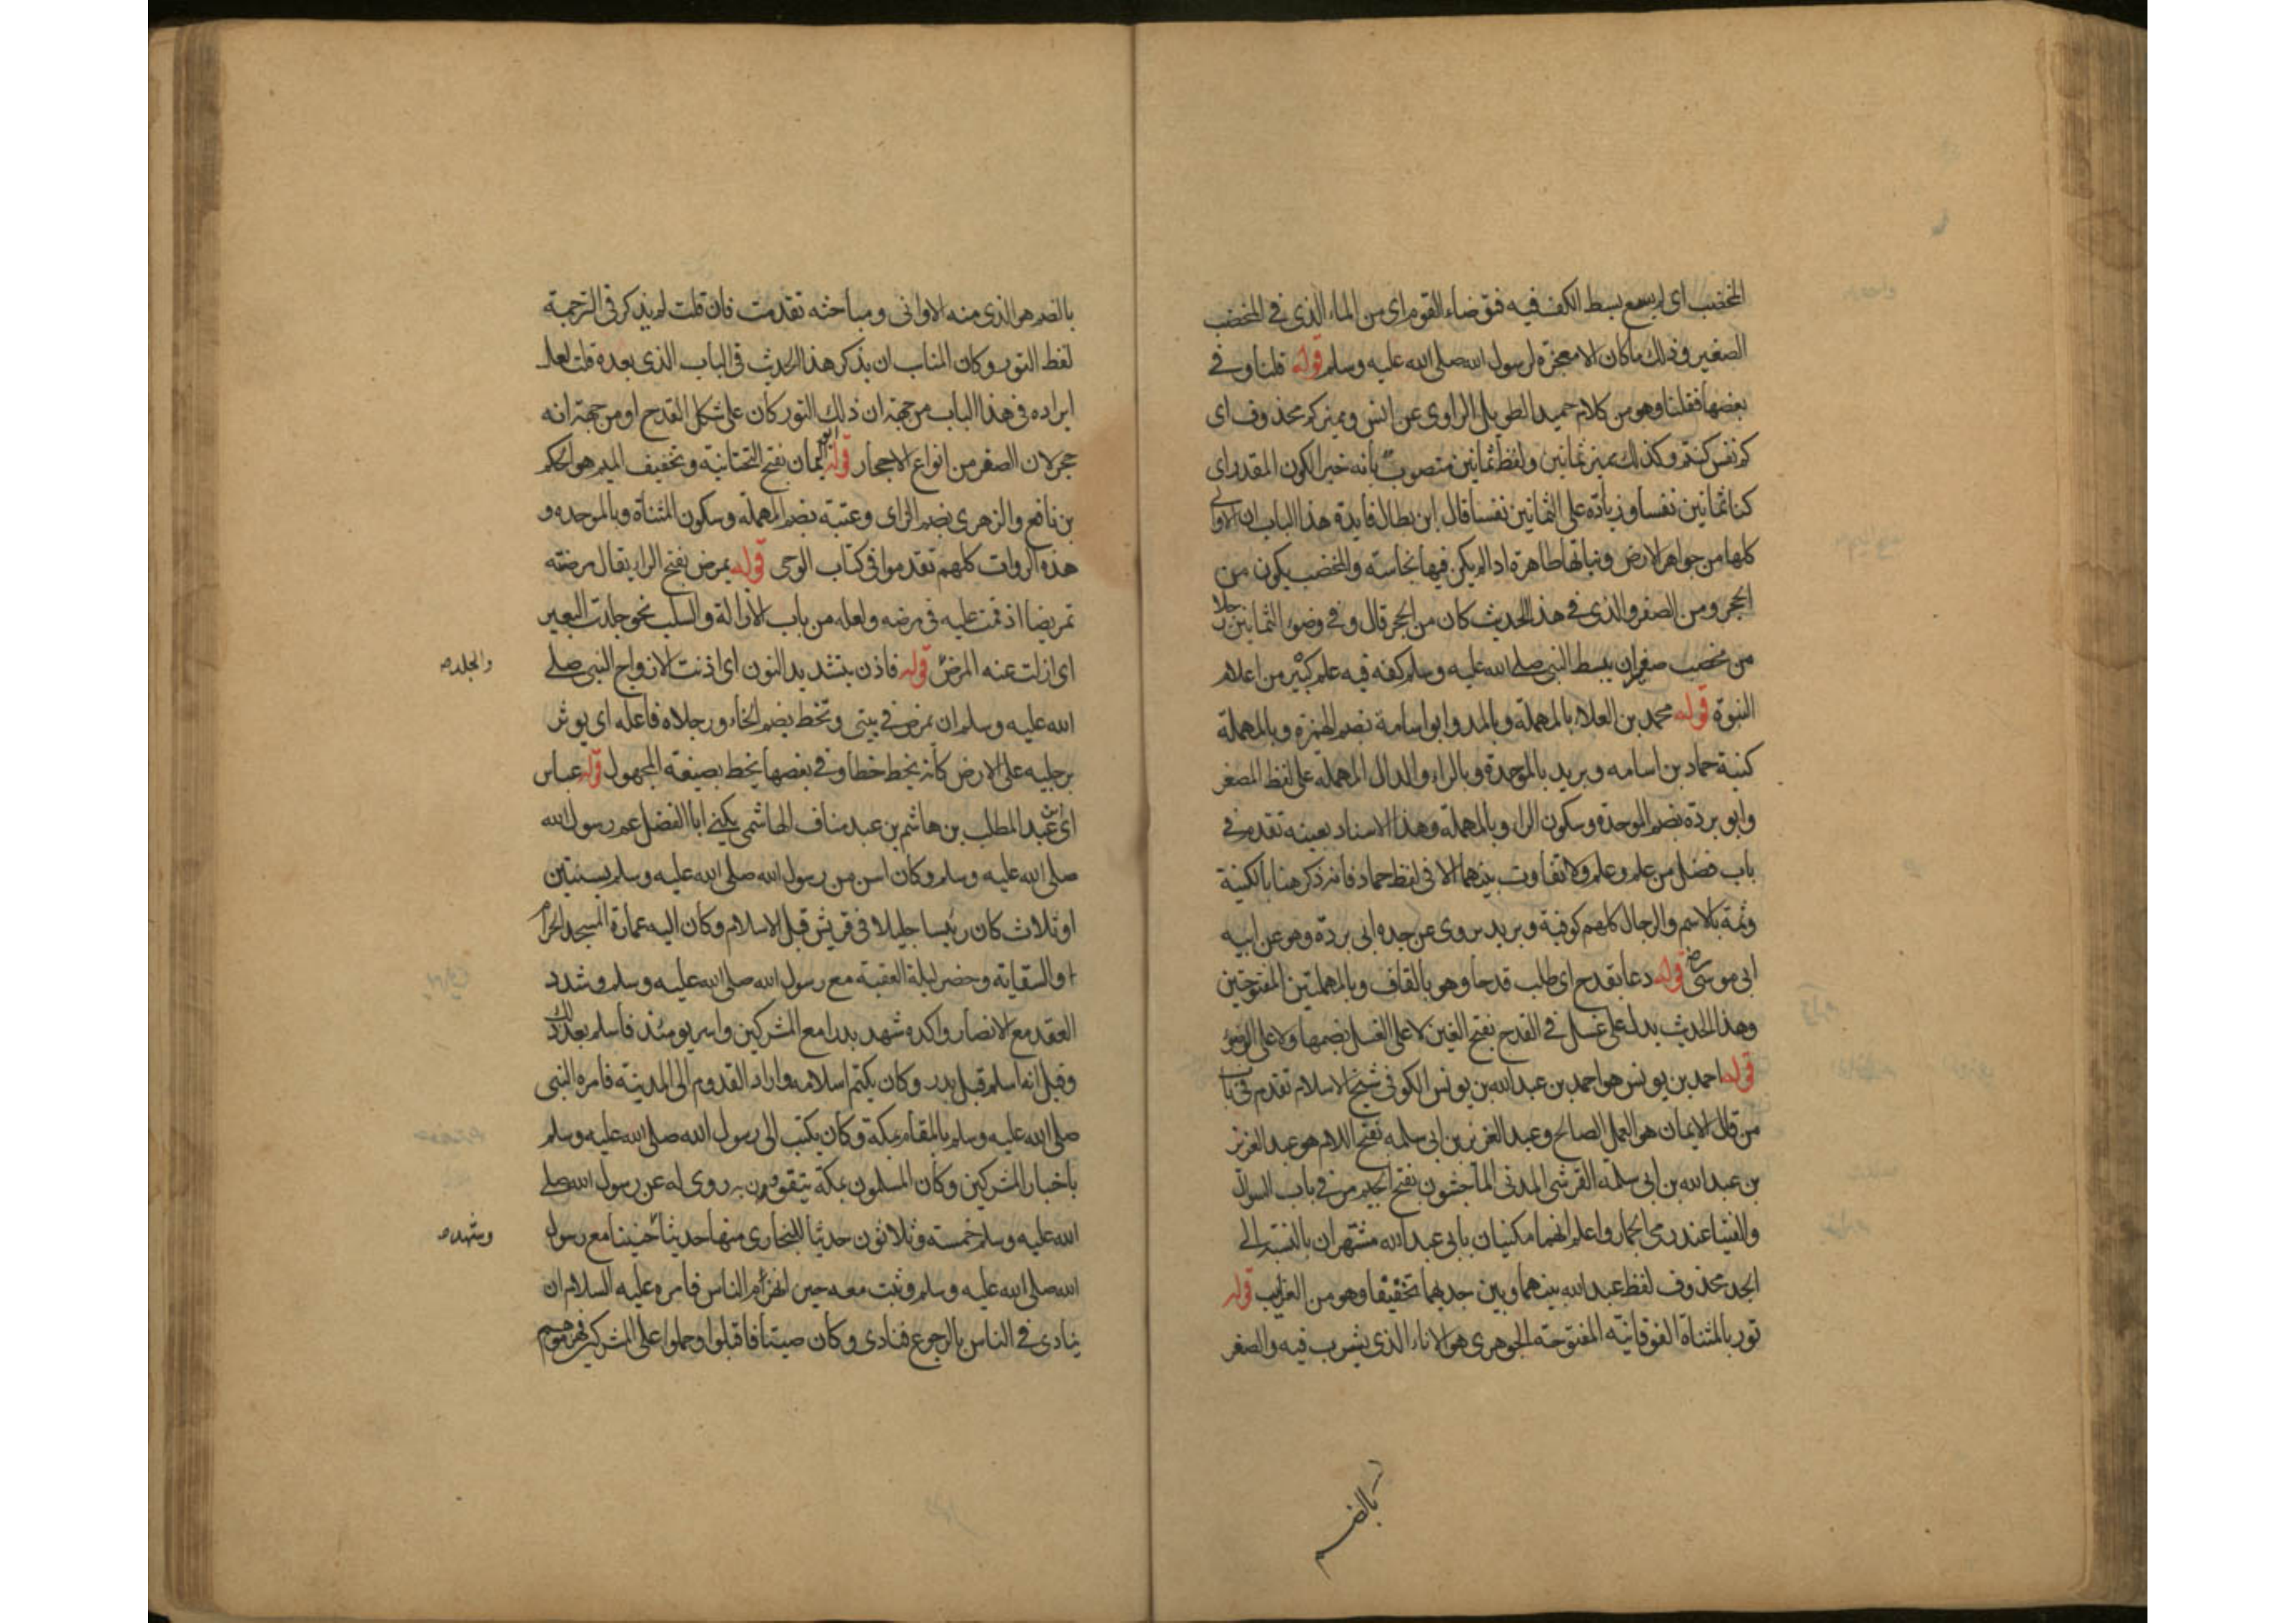 المخضب اى لم يسع بسط الكف فيه فتوضاء القوم اى من الماء الذى فى المخضب
الصغير وذلك ما كان الا معجزة لرسول الله صلى الله عليه وسلم قوله قلنا وفى
بعضها فقلنا وهو من كلام حميد الطويل الراوى عن انس ومميز كم محذوف اى
كم نفس كنتم وكذلك مميز ثمانين ولفظ ثمانين منصوب بانه خبر الكون المقدر اى
كنا ثمانين نفسا وزيادة على الثمانين نفسا قال ابن بطال فايدة هذا الباب ان الاوانى
كلها من جواهر الارض ونباتها طاهرة اذا لم يكن فيها نجاسة والمخضب يكون من
الحجر ومن الصفر والذى فى هذا الحديث كان من الحجر قال وفى وضوء الثمانين رجلا
من مخضب صغر ان يبسط النبى صلى الله عليه وسلم كفه فيه علم كبير من اعلام
النبوة قوله محمد بن العلاء بالمهملة وبالمد وابو اسامة بضم الهمزة وبالمهملة
كنية حماد بن اسامه وبريد بالموحدة وبالراء والدال المهمله على لفظ المصغر
وابو بردة بضم الموحدة وسكون الراء وبالمهملة وهذا الاسناد بعينه تقدم فى
باب فضل من علم وعلم ولا تفاوت بينهما الا فى لفظ حماد فانه ذكر هنا بالكنية
وثمة بالاسم والرجال كلهم كوفية وبريد يروى عن جده ابى بردة وهو عن ابيه
ابى موسى رض قوله دعا بقدح اى طلب قدحا وهو بالقاف وبالمهملتين المفتوحتين
وهذا الحديث يدل على غسل فى القدح بفتح الغين لا على الغسل بضمها ولا على الوضوء
قوله احمد بن يونس هو احمد بن عبدالله بن يونس الكوفى شيخ الاسلام تقدم فى باب
من قال الايمان هو العمل الصالح وعبد العزيز بن ابى سلمه بفتح اللام هو عبد العزيز
بن عبدالله بن ابى سلمة القرشى المدنى الماجشون بفتح الجيم مر فى باب السوال
والفتيا عند رمى الجمار واعلم انهما مكنيان بابى عبدالله مشتهران بالنسبة الى
الجد محذوف لفظ عبدالله بينهما وبين جديهما تخفيفا وهو من الغرايب قوله
تور بالمثناة الفوقانية المفتوحة الجوهرى هو الاناء الذى يشرب فيه والصفر
بالضم
بالضم هو الذى منه الاوانى ومباحثه تقدمت فان قلت لم يذكر فى الترجمة
لفظ التور وكان المناسب ان يذكر هذا الحديث فى الباب الذى بعده قلت لعل
ايراده فى هذا الباب من جهة ان ذلك التور كان على شكل القدح او من جهة انه
حجر لان الصفر من انواع الاحجار قوله ابو اليمان بفتح التحتانية وتخفيف الميم هو الحكم
بن نافع والزهرى بضم الزاى وعتبة بضم المهملة وسكون المثناة وبالموحده و
هذه الروات كلهم تقدموا فى كتاب الوحى قوله يمرض بفتح الراء يقال مرضته
تمريضا اذ قمت عليه فى مرضه ولعله من باب الازالة والسلب نحو جلدت البعير
اى ازلت عنه المرض قوله فاذن بتشديد النون اى اذنت الازواج النبى صلى
والجلده
الله عليه وسلم ان يمرض فى بيتى وتخط بضم الخاء ورجلاه فاعله اى يوثر
برجليه على الارض كأنه يخط خطا وفى بعضها يخط بصيغة المجهول قوله عباس
اى بن عبد المطلب بن هاشم بن عبد مناف الهاشمى يكنى ابا الفضل عم رسول الله
صلى الله عليه وسلم وكان اسن من رسول الله صلى الله عليه وسلم بسنتين
او ثلاث كان رئيسا جليلا فى قريش قبل الاسلام وكان اليه عمارة المسجد الحرام
والسقاية وحضر ليلة العقبة مع رسول الله صلى الله عليه وسلم وشدد
العقد مع الانصار واكده شهد بدرا مع المشركين واسر يومئذ فاسلم بعد ذلك
وقيل انه اسلم قبل بدر وكان يكتم اسلامه واراد القدوم الى المدينة فامره النبى
صلى الله عليه وسلم بالمقام بمكة وكان يكتب الى رسول الله صلى الله عليه وسلم
باخبار المشركين وكان المسلمون بمكة يتقوون به روى له عن رسول الله صلى
الله عليه وسلم خمسة وثلاثون حديثا للبخارى منها حديثا حنينا مع رسول
وشهده
الله صلى الله عليه وسلم وثبت معه حين انهزم الناس فامره عليه السلام ان
ينادى فى الناس بالرجوع فنادى وكان صيتا فاقبلوا وحملوا على المشركين فهزموهم